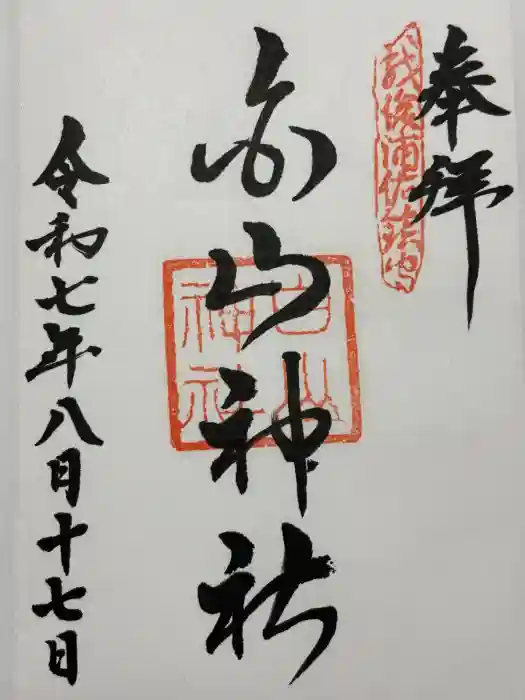 奉拝
越後浦佐鎮守
白山神社
白山神社
令和七年八月十七日